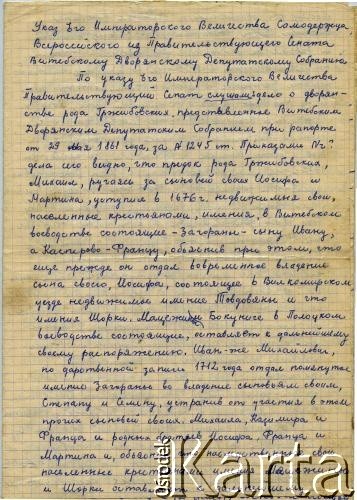 Указ Его Императорского Величества Самодержца
Всероссийского из Правительствующего Сената
Витебскому Дворянскому Депутатскому Собранию.
По указу Его Императорского Величества
Правительствующий Сенат слушали дело о дворян-
стве рода Гржибовских, представленные Витебским
Дворянским Депутатским Собранием при рапорте
от 29 мая 1861 года, за № 1245 ст. Приказали №2:
дела его видно, что предок рода Гржибовских,
Михаил, ручаясь за сыновей своих Иосифа и
Мартина, уступил в 1676 г. недвижимые свои,
населенные крестьянами, имения, в Витебском
воеводстве состоящие - Загоране - сыну Ивану,
а Касперово - Францу, объяснив при этом, что
еще прежде он отдал во временное владение
сына своего, Иосифа, состоящее в Вилкомирском
уезде недвижимое имение Товдовяны и что
имения Шорки, Мацежин, Бокунисе в Полоцком
воеводстве состоящие, оставляет к дальнейшему
своему распоряжению, Иван-же Михайлович,
по дарственной записи 1712 года отдал помянутое
имение Загораны во владение сыновьям своим,
Степану и Семену, устранив от участия в этом
прочих сыновей своих: Михаила, Казимира и
Франца и родных братьев Иосифа, Франца и
Мартина и, объяснив, что наследственные свои
населенные крестьянами имения
и Шорки оставляет к
Ośrodek
Karta